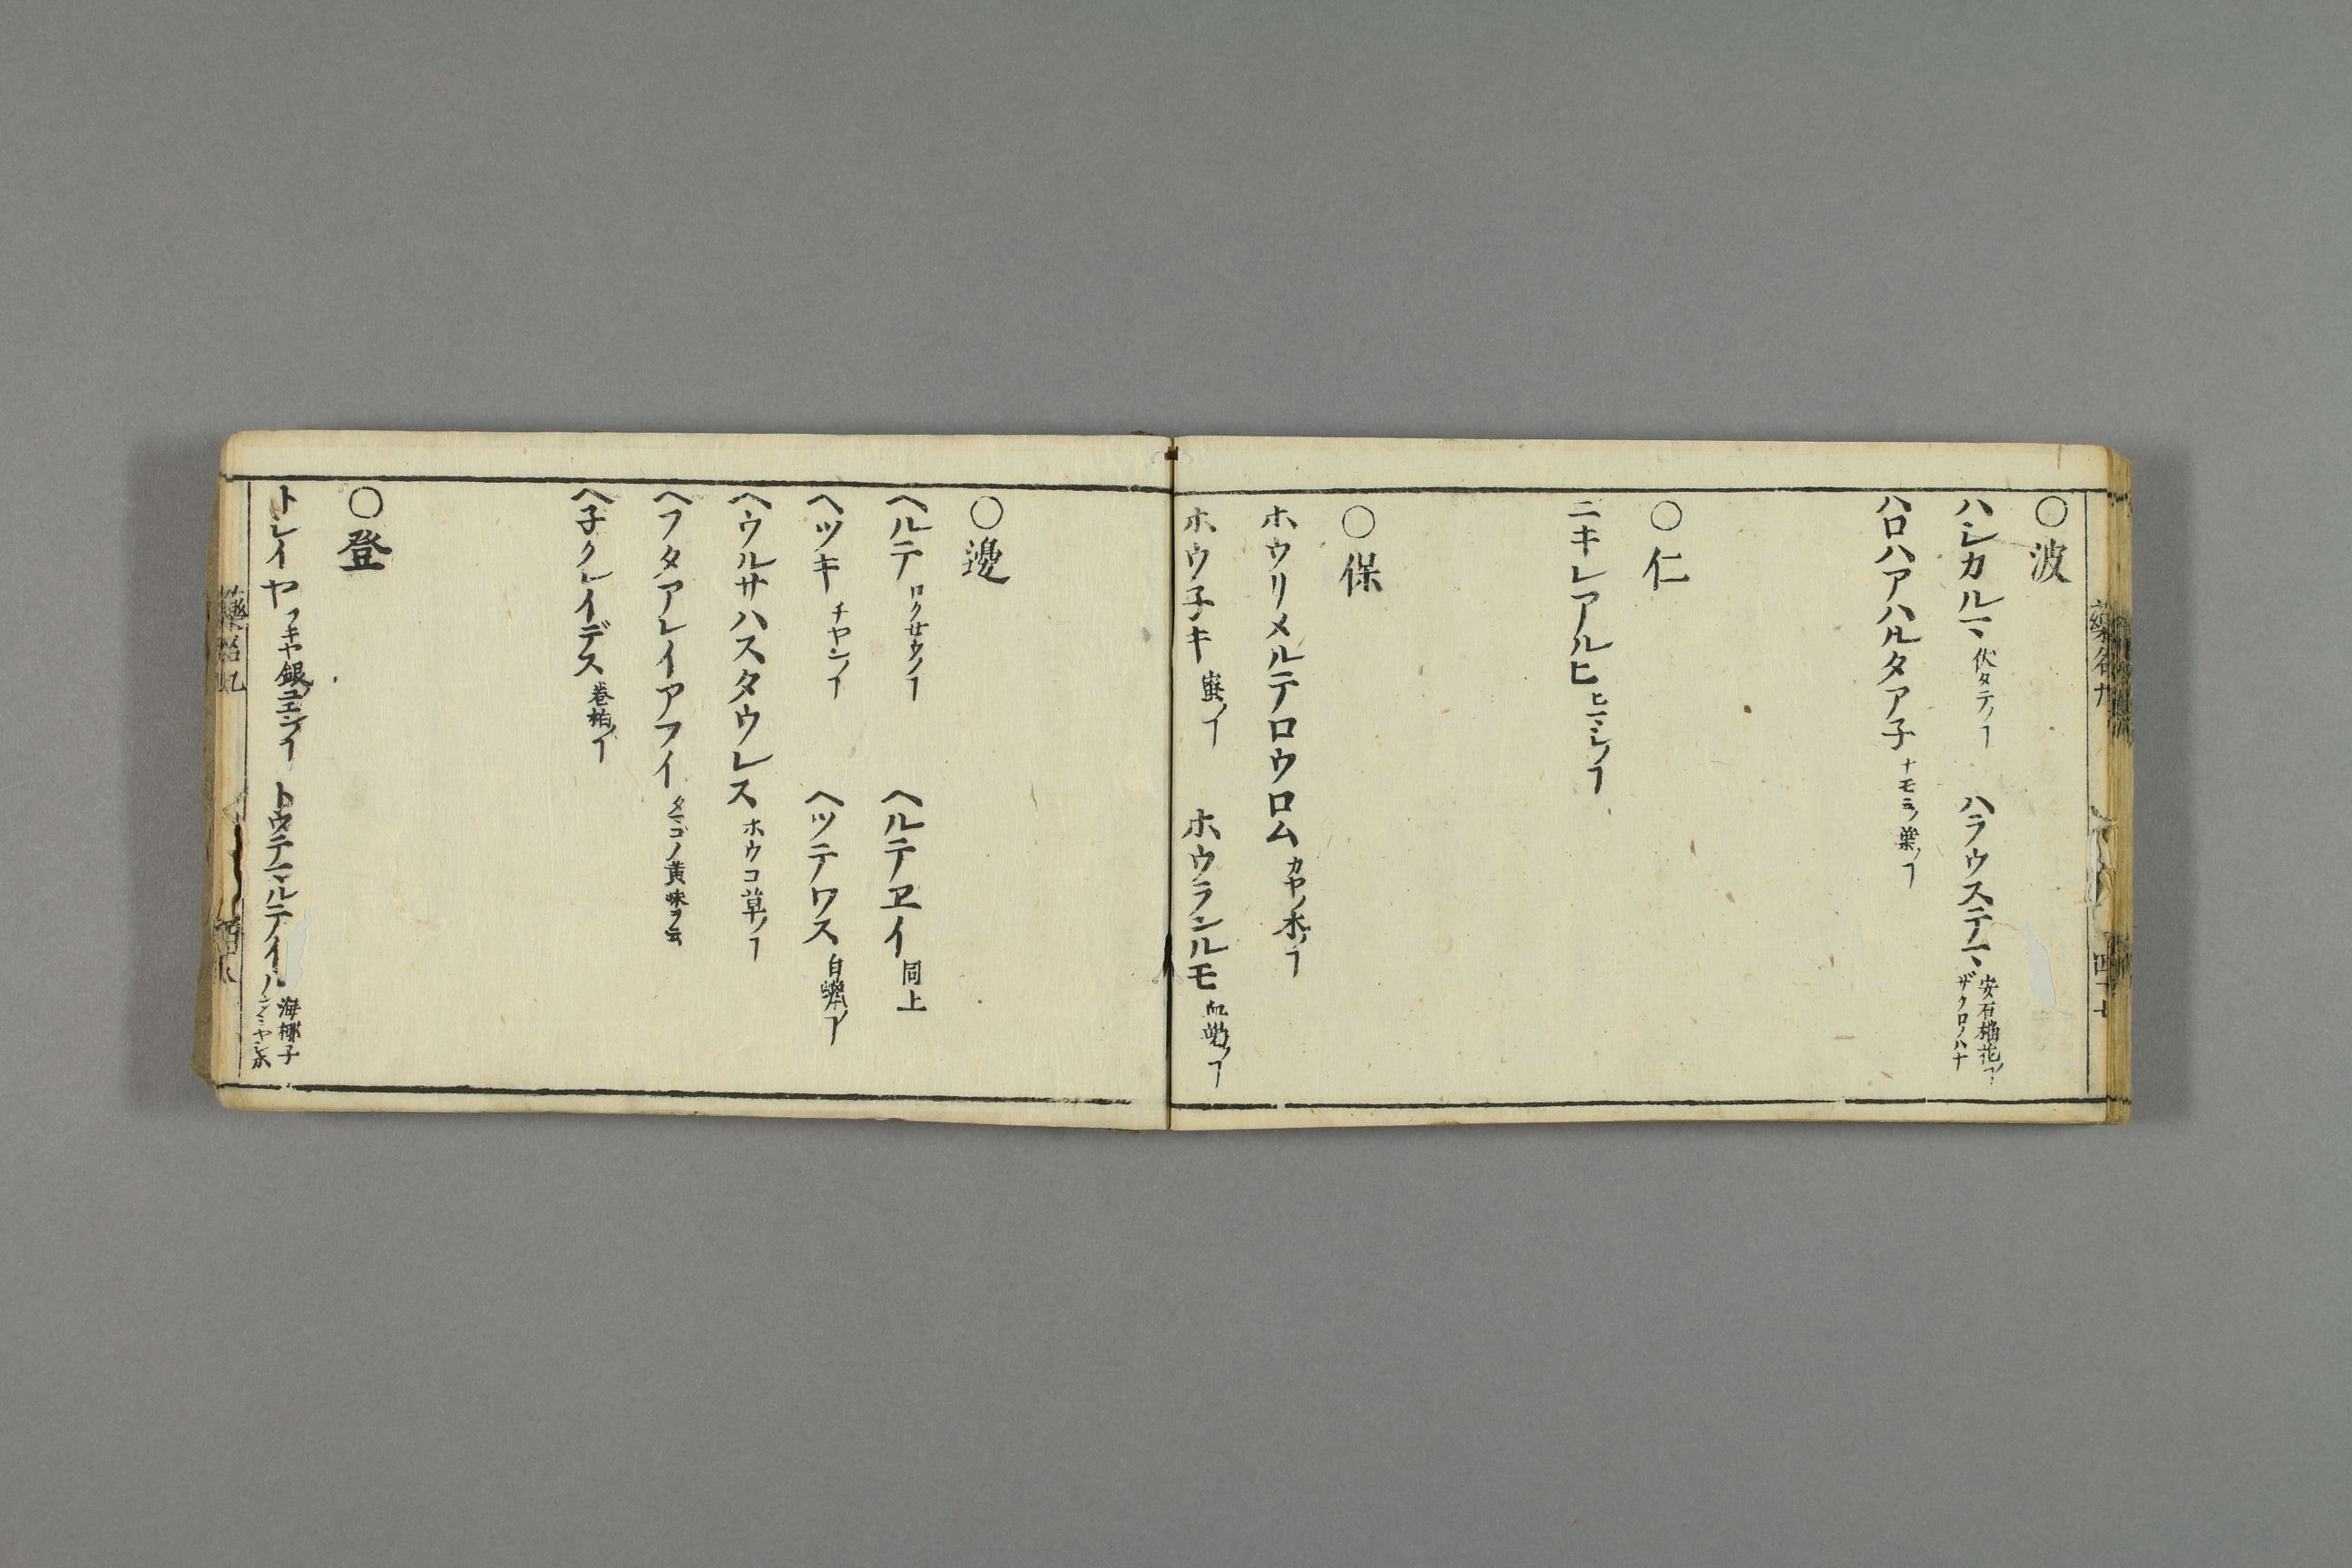 〇波
ハシカルマ 伏タテノヿ ハラウステマ 安石榴花ノヿ ザクロノハナ
ハロハアハルタア子 ナモミノ葉ノヿ
〇仁
ニキレアルヒ ヒマシノヿ
〇保
ホウリメルテロウロム カヤノ木ノヿ
ホウ子キ 蜜ノヿ ホウランルモ 血竭ノヿ
〇邊
ヘルテ ロクセウノヿ ヘルテヱイ 同上
ヘツキ チヤンノヿ ヘツテワス 白蠟ノヿ
ヘウルサハスタウレス ホウコ草ノヿ
ヘフタアレイアフイ タマゴノ黄味ヲ云
ヘ子クレイデス 巻柏ノヿ
〇登
トレイヤ フキヤ銀 トウテマルテイハ 海椰子